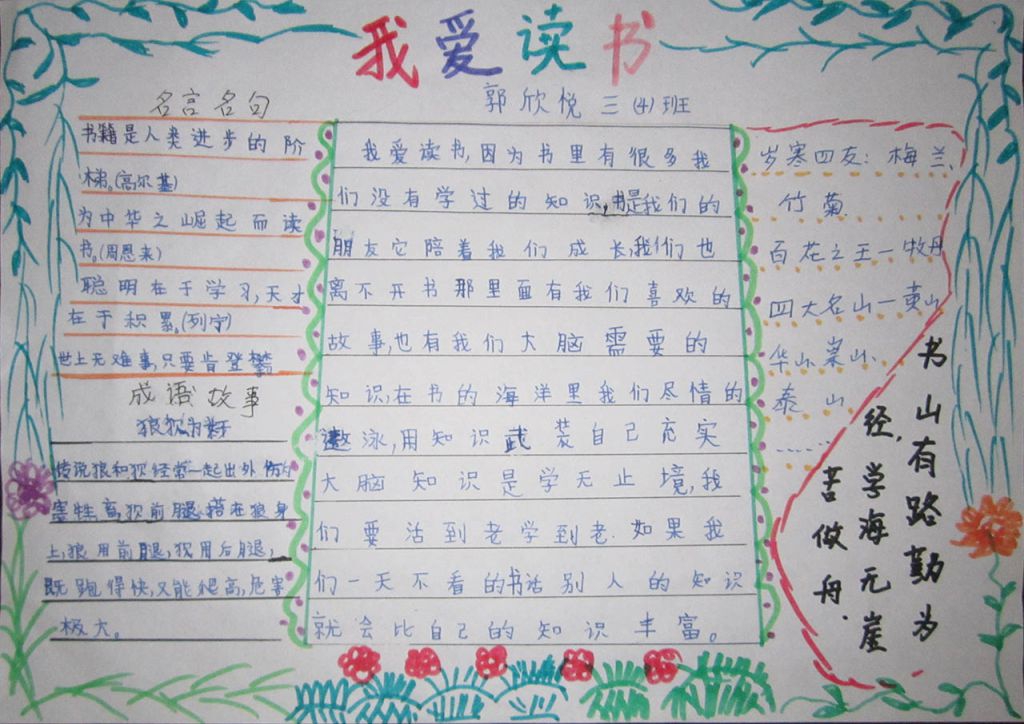 我爱读书
郭欣悦 三(4)班
名言名句
书籍是人类进步的阶
梯。(高尔基)
为中华之崛起而读
书。(周恩来)
聪明在于学习,天才
在于积累。(列宁)
世上无难事,只要肯登攀
成语故事
狼狈为奸
传说狼和狈经常一起出外伤
害牲畜,狈前腿搭在狼身
上,狼用前腿,狈用后腿,
既跑得快,又能爬高,危害
极大。
我爱读书,因为书里有很多我
们没有学过的知识,书是我们的
朋友它陪着我们成长,我们也
离不开书那里面有我们喜欢的
故事,也有我们大脑需要的
知识,在书的海洋里我们尽情的
遨泳,用知识武装自己充实
大脑 知识是学无止境,我
们要活到老学到老.如果我
们一天不看的书话别人的知识
就会比自己的知识丰富。
岁寒四友:梅兰
竹菊
百花之王—牡丹
四大名山—黄山
华山、泰山、
泰山
……
书山有路勤为
经,学海无崖
苦做舟.